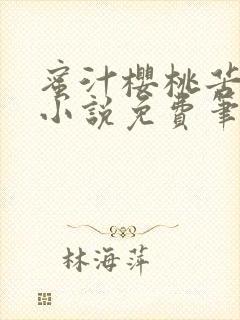 蜜汁櫻桃苦
小說免費筆
林海萍